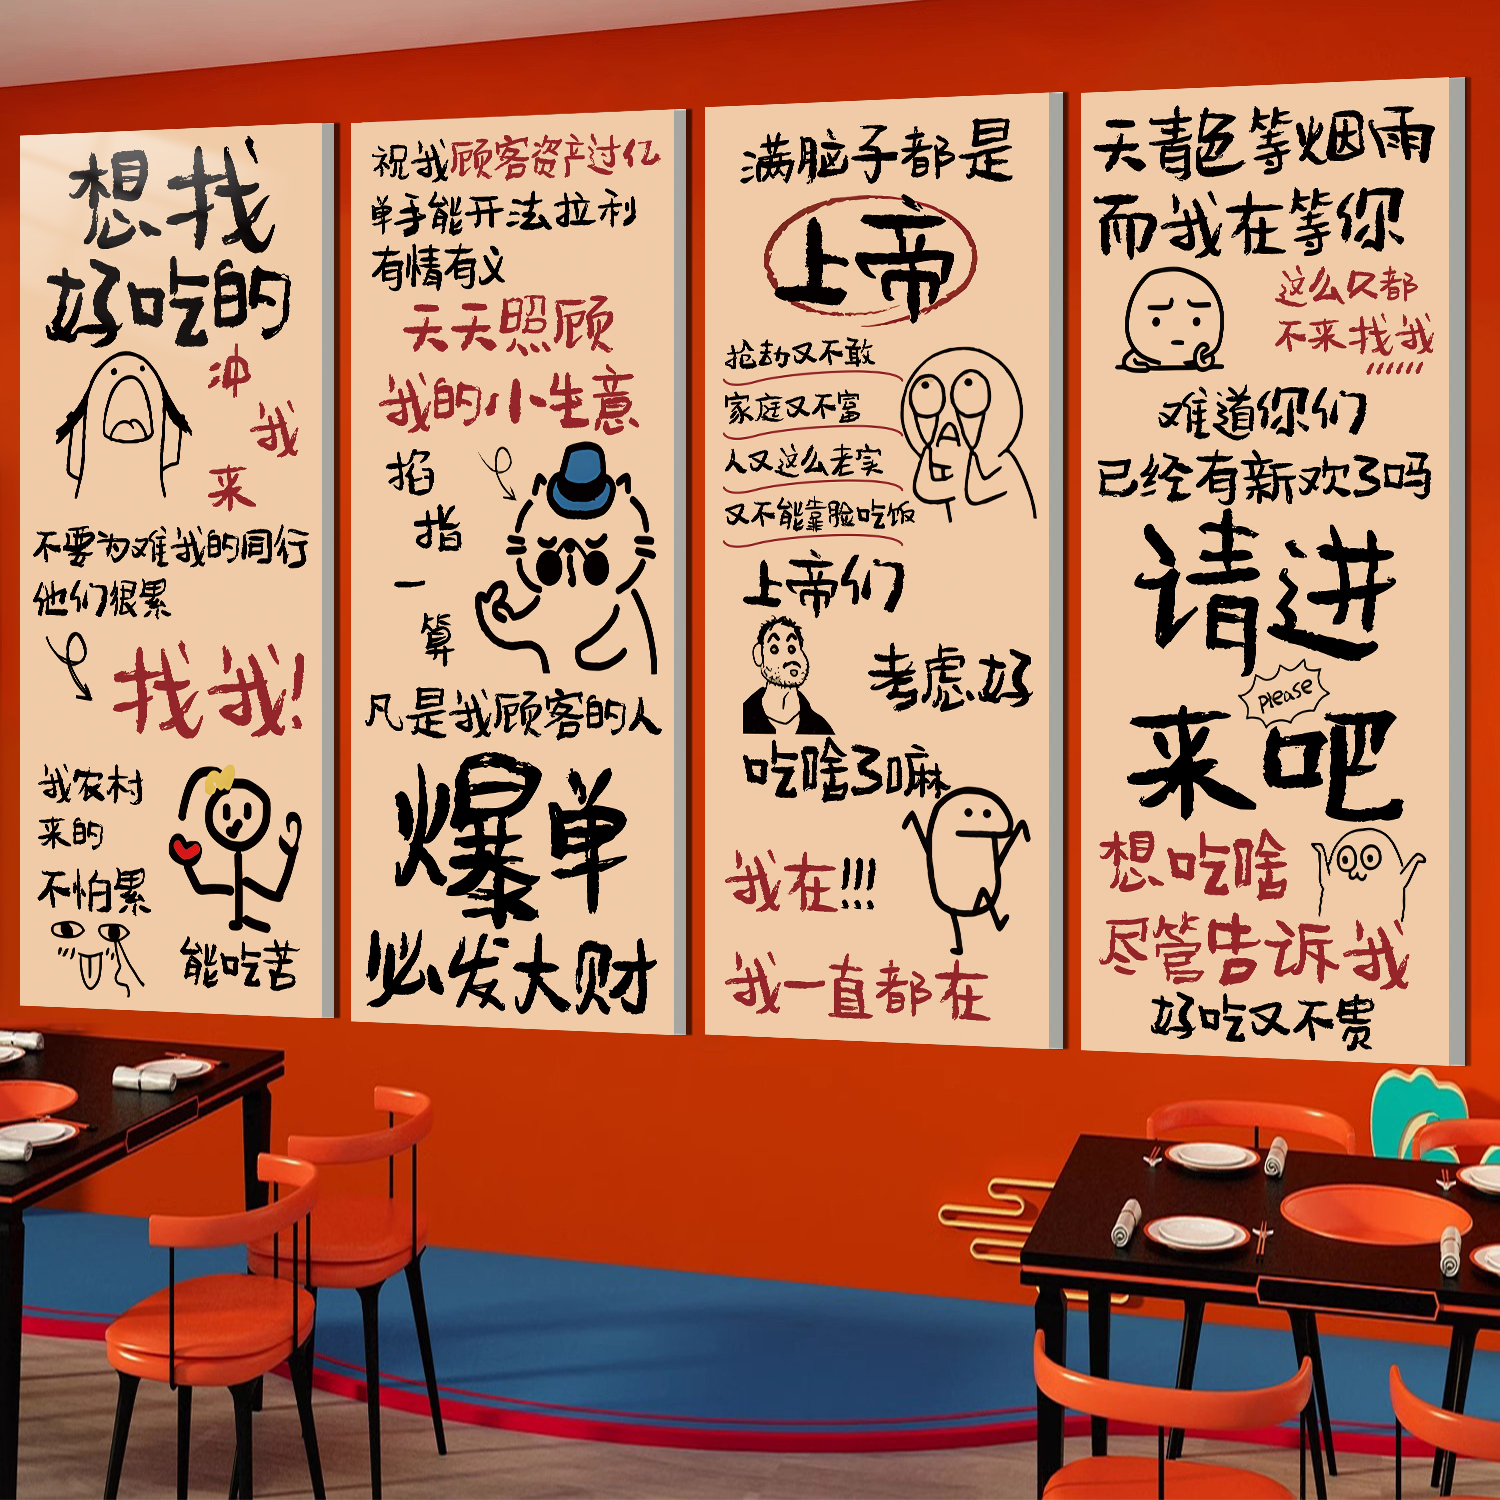 想找
好吃的
冲
我
来
不要为难我的同行
他们很累
找我!
我农村
来的
不怕累
能吃苦
祝我顾客资产过亿
单手能开法拉利
有情有义
天天照顾
我的小生意
掐
指
一
算
凡是我顾客的人
爆单
必发大财
满脑子都是
上帝
抢劫又不敢
家庭又不富
人又这么老实
又不能靠脸吃饭
上帝们
考虑好
吃啥了嘛
我在!!!
我一直都在
天青色等烟雨
而我在等你
这么久都
不来找我
难道你们
已经有新欢了吗
请进
please
来吧
想吃啥
尽管告诉我
好吃又不贵